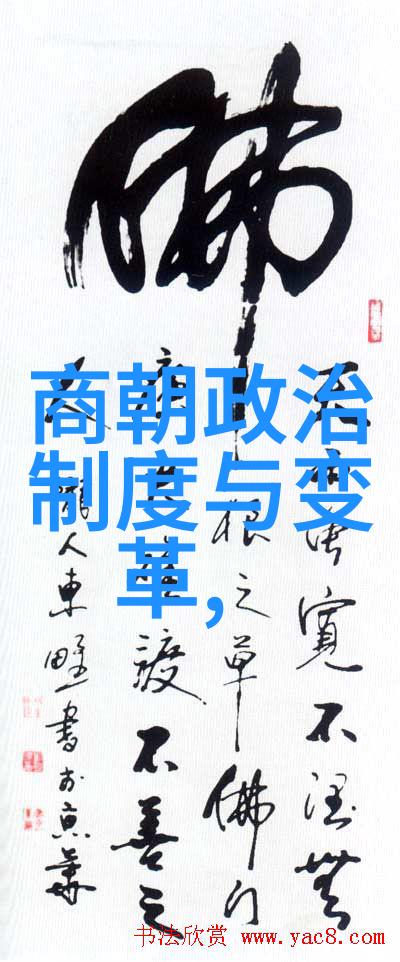 佛
商朝政治
制度与变
革,
寬不潤無
根之草佛门
渡不善之
人東野書於京華
书法欣赏 www.yac8.com